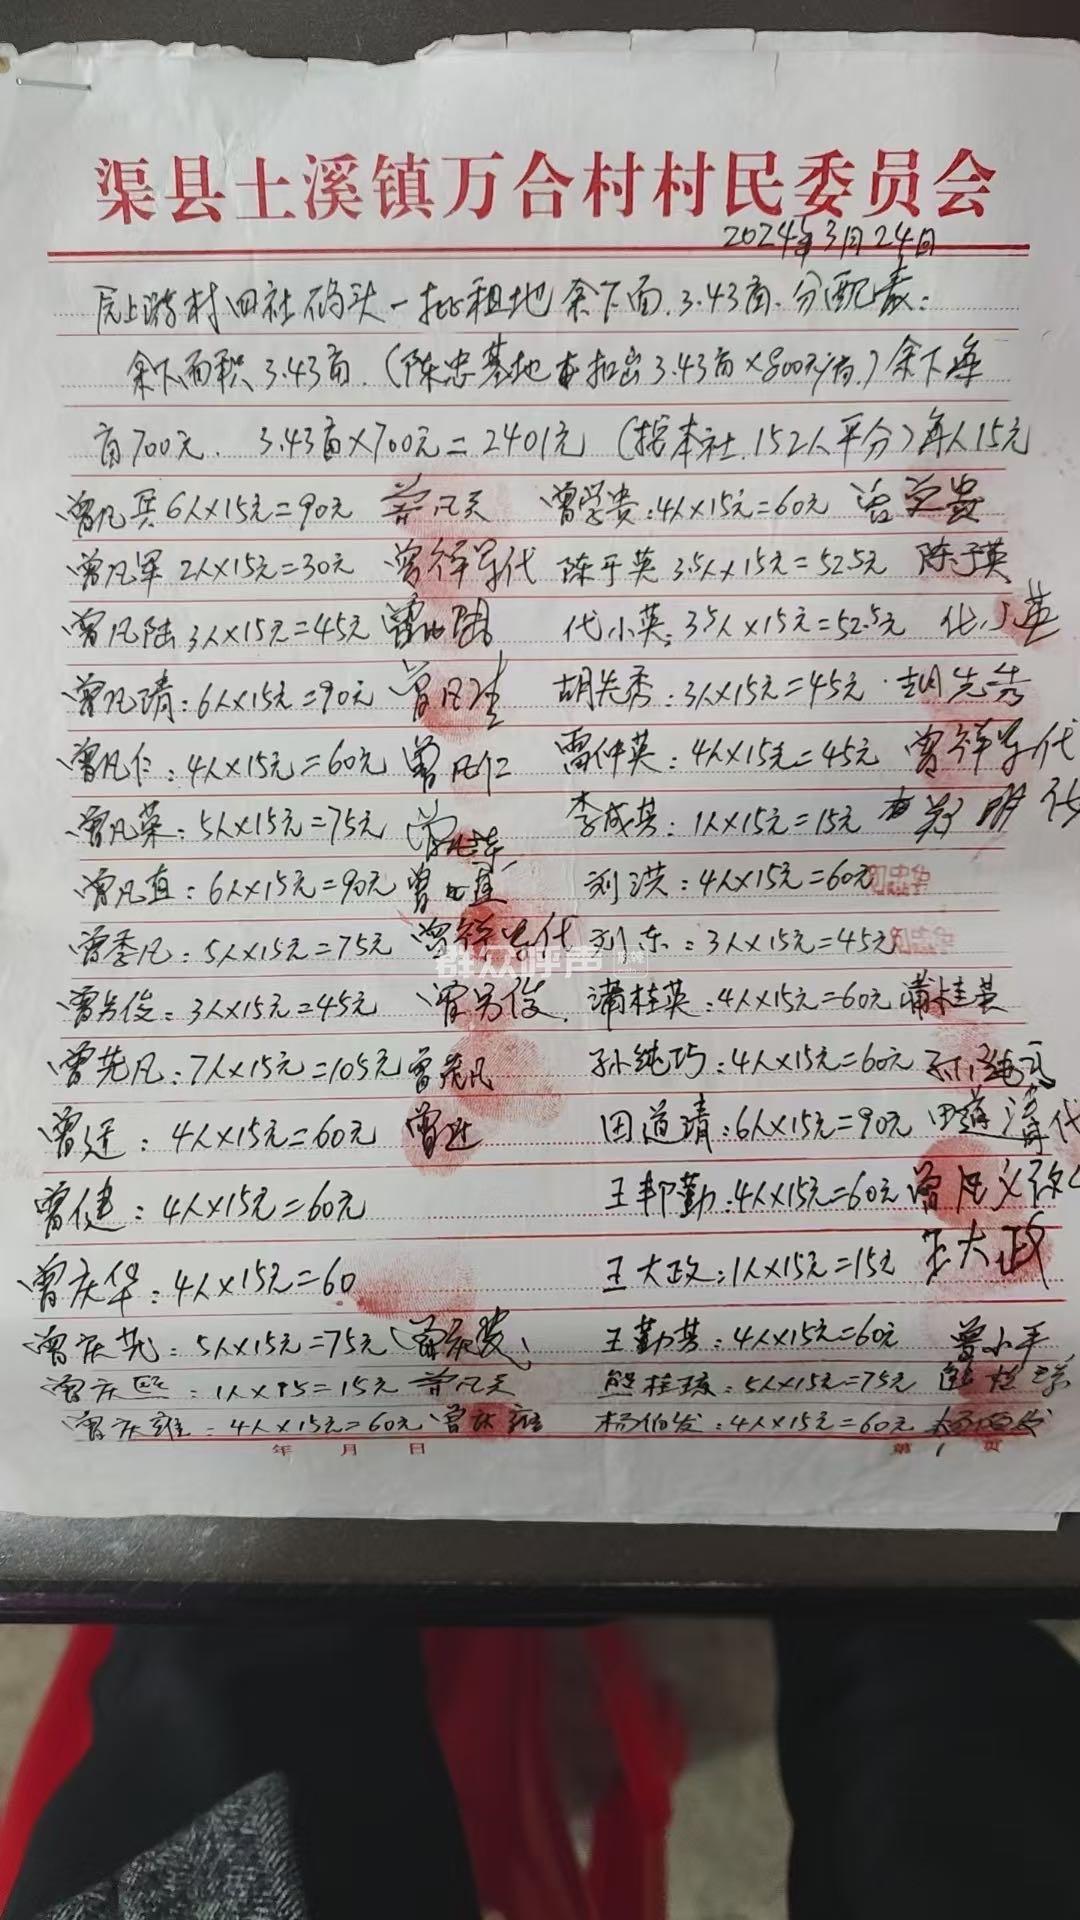 渠县土溪镇万合村村民委员会
2024年3月24日
村四社码头一批租地余下面.3.43亩.分配表:
余下面积3.43亩.(陈忠基地 扣出3.43亩×800元/亩.)余下每
亩700元. 3.43亩×700元=2401元 (按本社.152人平分)每人15元
曾凡 6人×15元=90元 曾学贵:4人×15元=60元 曾学贵
曾凡军 2人×15元=30元 曾祥军代 陈于英 3.5人×15元=52.5元 陈于英
曾凡陆 3人×15元=45元 曾凡陆 代小英:3.5人×15元=52.5元 代小英
曾凡清:6人×15元=90元 曾凡 胡先秀:3人×15元=45元 胡先秀
曾凡仁:4人×15元=60元 曾凡仁 雷仲英:4人×15元=45元 曾祥军代
曾凡荣:5人×15元=75元 李成英:1人×15元=15元 明代
曾凡直:6人×15元=90元 曾凡直 刘洪:4人×15元=60元 刘忠华
曾季凡:5人×15元=75元 曾祥军代 刘东:3人×15元=45元 刘忠华
群众呼声
曾另俊:3人×15元=45元 曾另俊 蒲桂英:4人×15元=60元 蒲桂英
曾先凡:7人×15元=105元 曾先凡 孙纯巧:4人×15元=60元 孙纯巧
曾 :4人×15元=60元 曾 田道清:6人×15元=90元 田道清代
曾健:4人×15元=60元 王邦勤:4人×15元=60元 曾
曾庆华:4人×15元=60 王大政:1人×15元=15元 王大政
曾庆 :5人×15元=75元 曾庆 王勤芳:4人×15元=60元 曾小平
曾庆熙:1人×15=15元 曾凡 熊桂琼:5人×15元=75元 熊桂琼
曾庆雄:4人×15元=60元 曾庆雄 杨伯发:4人×15元=60元 杨伯发
年 月 日 第 1 页